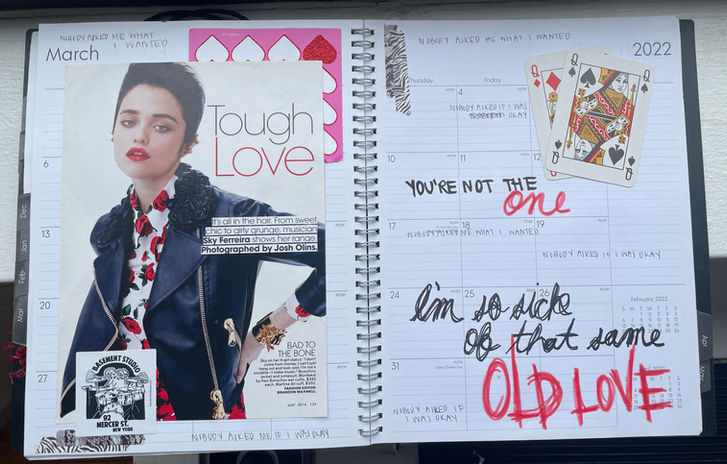 NOBODY ASKED ME WHAT
I WANTED
March
Tough
Love
It's all in the hair. From sweet
chic to girly grunge, musician
Sky Ferreira shows her range.
Photographed by Josh Olins.
6
13
20
27
BAD TO
THE BONE
MAY 2014
BASEMENT STUDIO
92
MERCER ST.
NEW YORK
NOBODY ASKED ME IF I WAS OKAY
NOBODY ASKED ME WHAT I WANTED
2022
Thursday
Friday
4
NOBODY ASKED IF I WAS
OKAY
Q
Q
Q
10
11
12
YOU'RE NOT THE
one
17
18
19
NOBODY ASKED ME WHAT I WANTED
NOBODY ASKED IF I WAS OKAY
24
25
26
I'm so sick
of that same
OLD LOVE
February 2022
S M T W T F S
31
NOBODY ASKED IF
I WAS OKAY
Dec
Jan
Feb
Mar
Apr